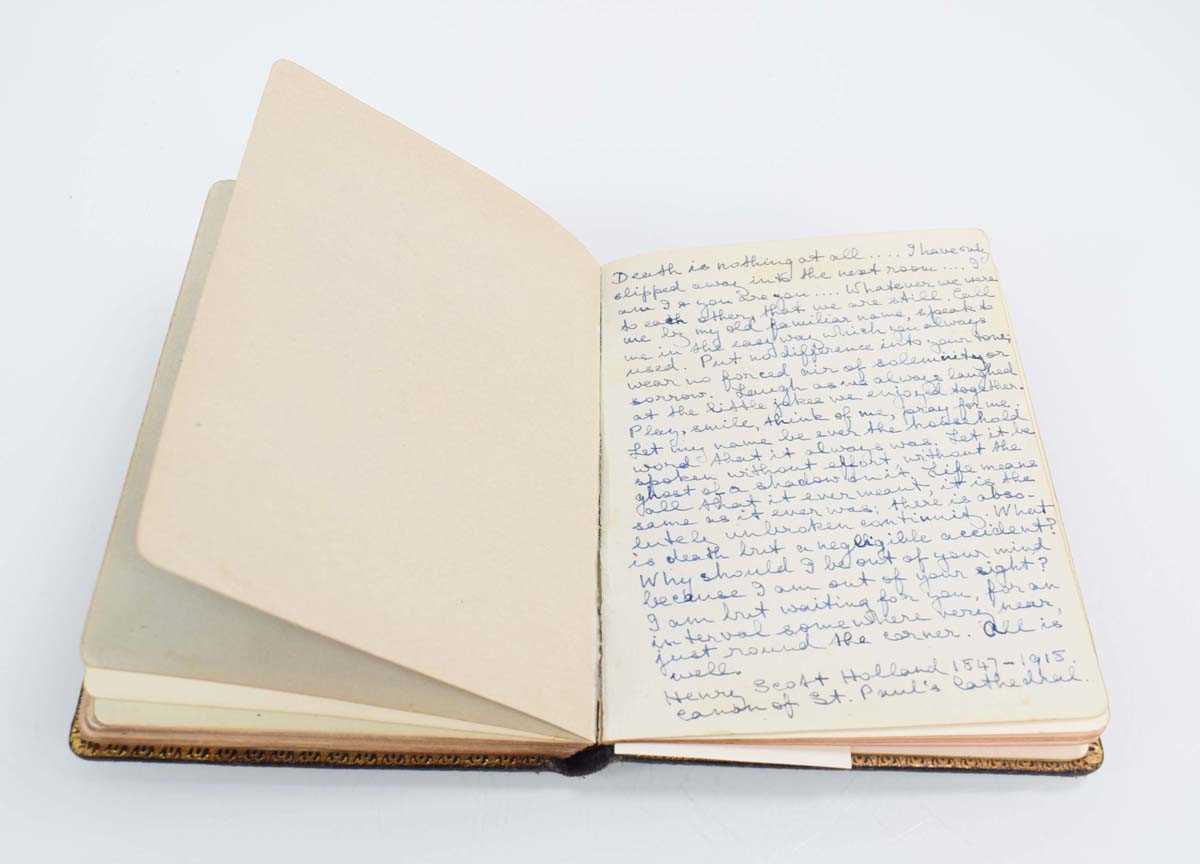 Death is nothing at all ..... I have only
slipped away into the next room .... I
am I & you are you .... Whatever we were
to each other, that we are still. Call
me by my old familiar name, speak to
me in the easy way which you always
used. Put no difference into your tone;
wear no forced air of solemnity or
sorrow. Laugh as we always laughed
at the little jokes we enjoyed together.
Play, smile, think of me, pray for me.
Let my name be ever the household
word that it always was. Let it be
spoken without effort, without the
ghost of a shadow on it. Life means
all that it ever meant, it is the
same as it ever was; there is abso-
lutely unbroken continuity. What
is death but a negligible accident?
Why should I be out of your mind
because I am out of your sight?
I am but waiting for you, for an
interval, somewhere very near,
just round the corner. All is
well.
Henry Scott Holland 1847-1918.
Canon of St. Paul's Cathedral.